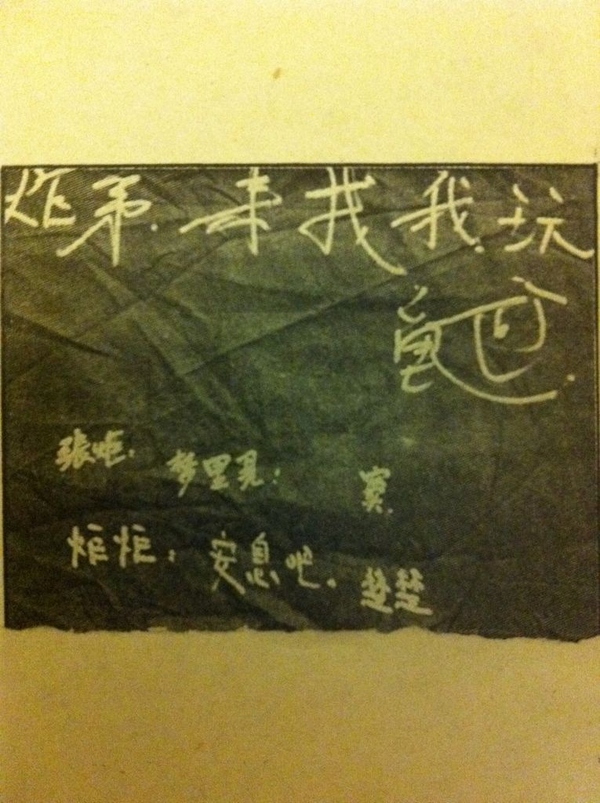 炬弟.来找我玩
张炬: 梦里见: 窦.
炬炬: 安息吧. 楚楚